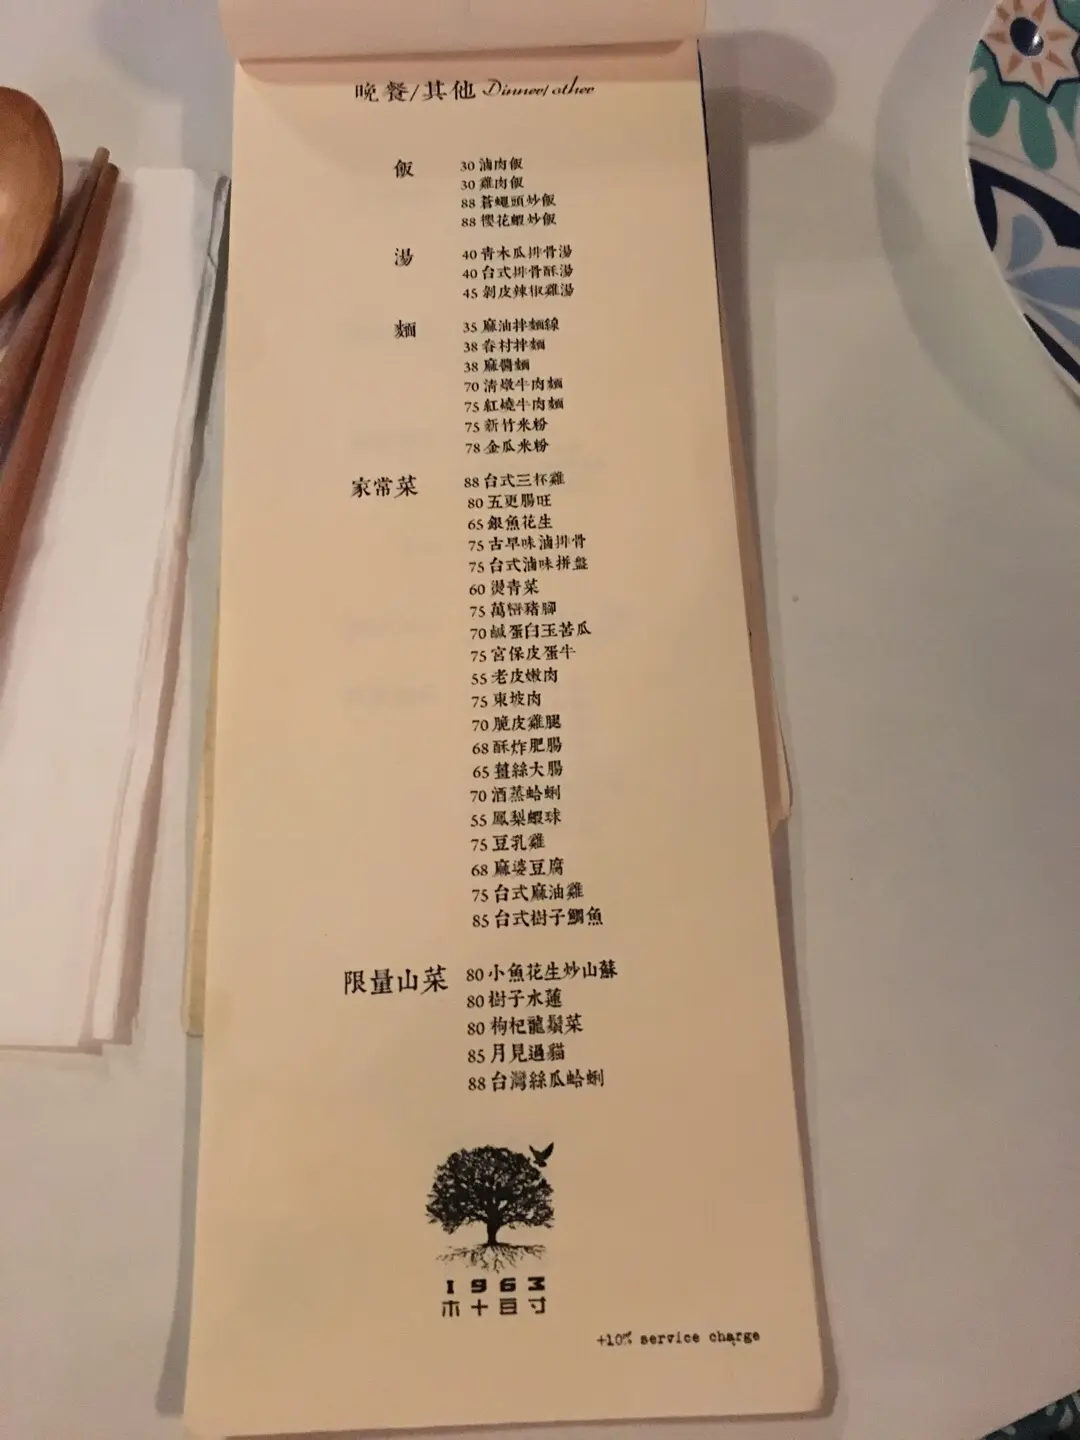 晚餐/其他 Dinner/other
飯
30 滷肉飯
30 雞肉飯
88 蒼蠅頭炒飯
88 櫻花蝦炒飯
湯
40 青木瓜排骨湯
40 台式排骨酥湯
45 剝皮辣椒雞湯
麵
35 麻油拌麵線
38 眷村拌麵
38 麻醬麵
70 清燉牛肉麵
75 紅燒牛肉麵
75 新竹米粉
78 金瓜米粉
家常菜
88 台式三杯雞
80 五更腸旺
65 銀魚花生
75 古早味滷排骨
75 台式滷味拼盤
60 燙青菜
75 萬巒豬腳
70 鹹蛋白玉苦瓜
75 宮保皮蛋牛
55 老皮嫩肉
75 東坡肉
70 脆皮雞腿
68 酥炸肥腸
65 薑絲大腸
70 酒蒸蛤蜊
55 鳳梨蝦球
75 豆乳雞
68 麻婆豆腐
75 台式麻油雞
85 台式樹子鯛魚
限量山菜
80 小魚花生炒山蘇
80 樹子水蓮
80 枸杞龍鬚菜
85 月見過貓
88 台灣絲瓜蛤蜊
1963
木十豆寸
+10% service charge